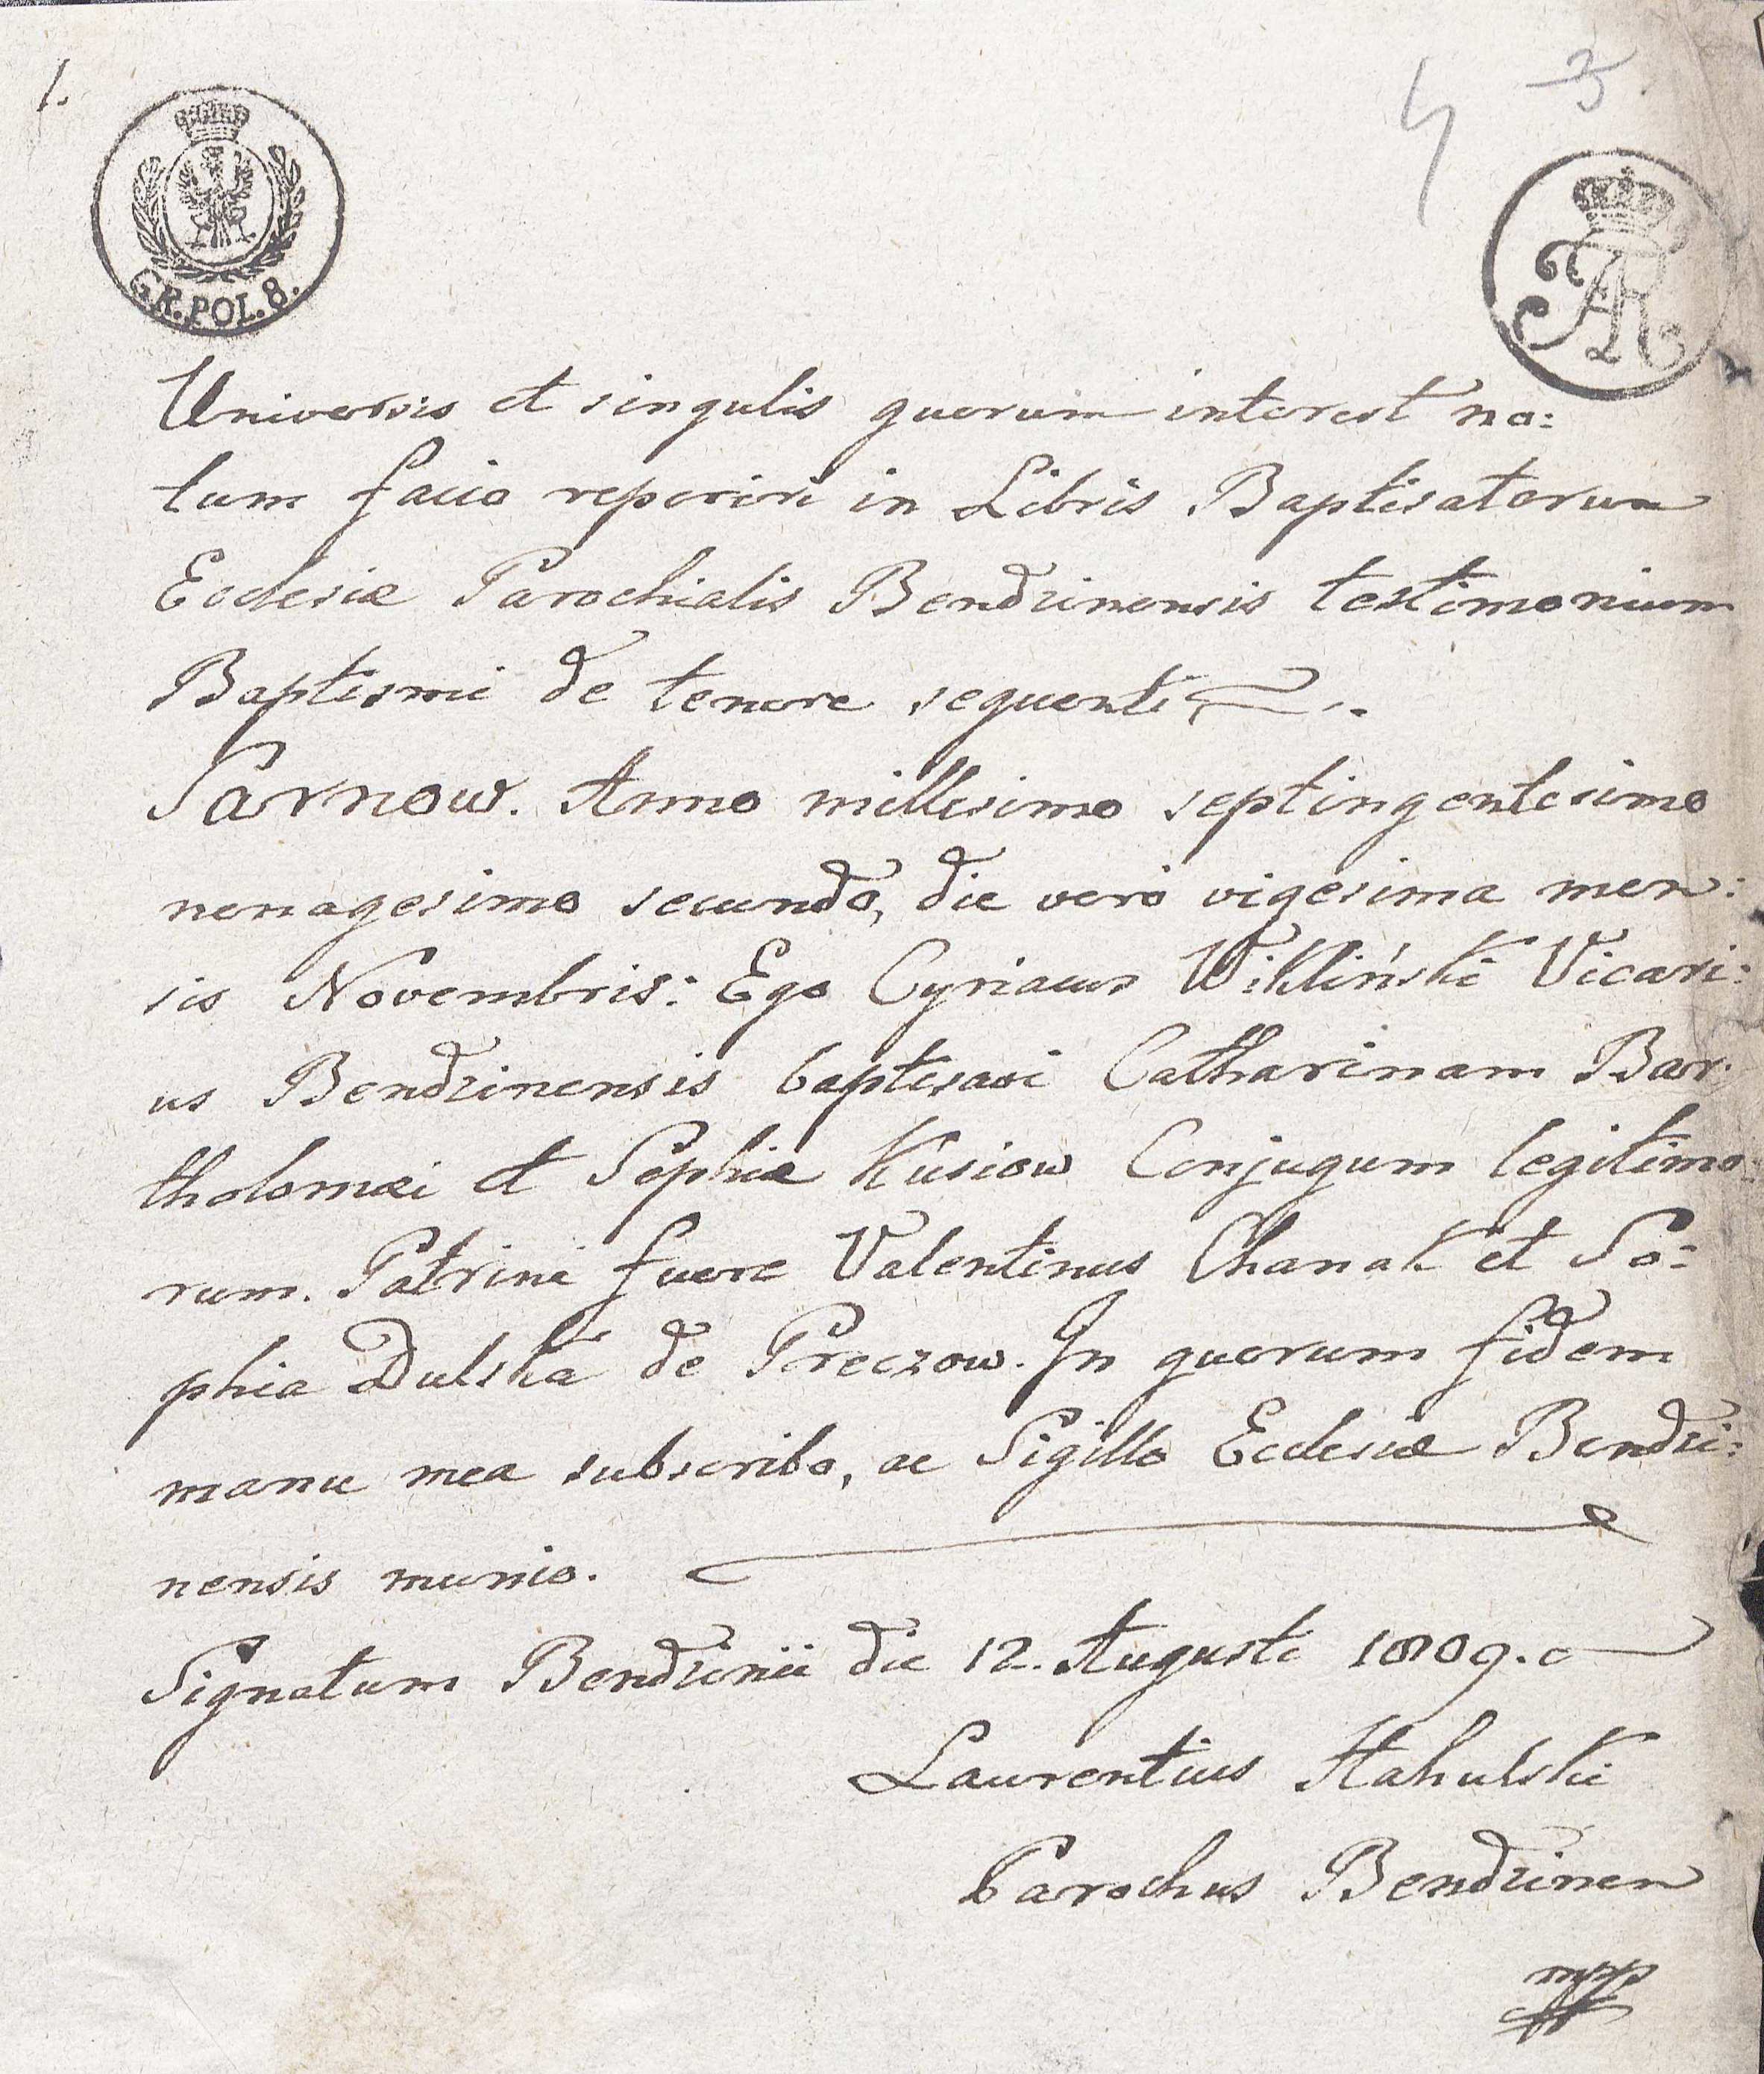 1.
4 3
GR.POL.8.
FAR
Universis et singulis quorum interest no:
tum facio reperiri in Libris Baptisatorum
Ecclesiæ Parochialis Bendzinensis testimonium
Baptismi de tenore sequenti
Sarnow. Anno millesimo septingentesimo
nonagesimo secundo, die vero vigesima men:
sis Novembris: Ego Cyriacus Wikliński Vicari:
us Bendzinensis baptisavi Catharinam Bar:
tholomæi et Sophiæ Kusiow Conjugum legitimo:
rum. Patrini fuere Valentinus Chanak et So:
phia Dulska de Preczow. In quorum fidem
manu mea subscribo, ac Sigillo Ecclesiæ Bendzi:
nensis munio.
Signatum Bendzinii die 12. Augusti 1809.
Laurentius Hahulski
Parochus Bendzinen
mpp